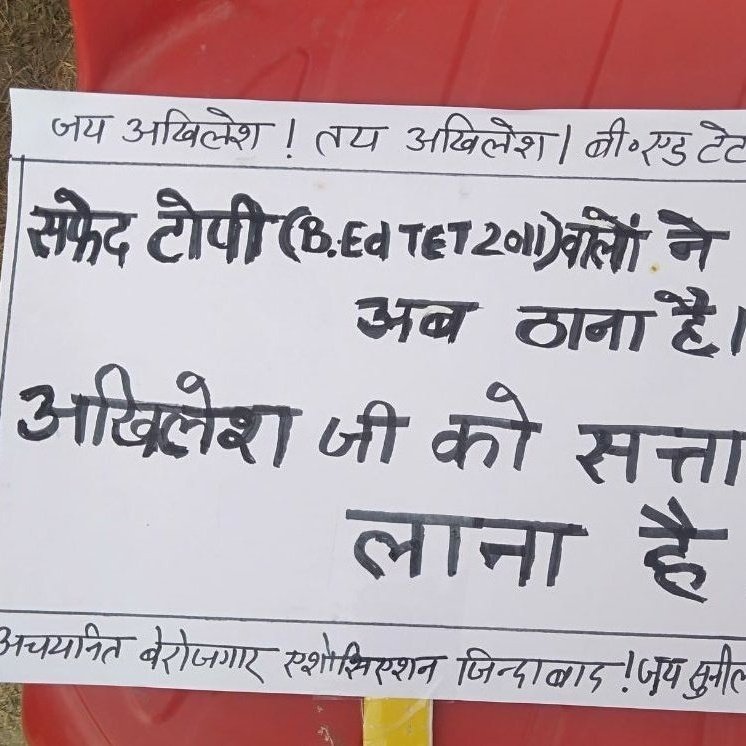 जय अखिलेश ! तय अखिलेश। बी॰एड टेट
सफेद टोपी (B.Ed TET 2011) वालों ने
अब ठाना है।
अखिलेश जी को सत्ता
लाना है
अचयनित बेरोजगार एशोसिएशन जिन्दाबाद ! जय सुनील